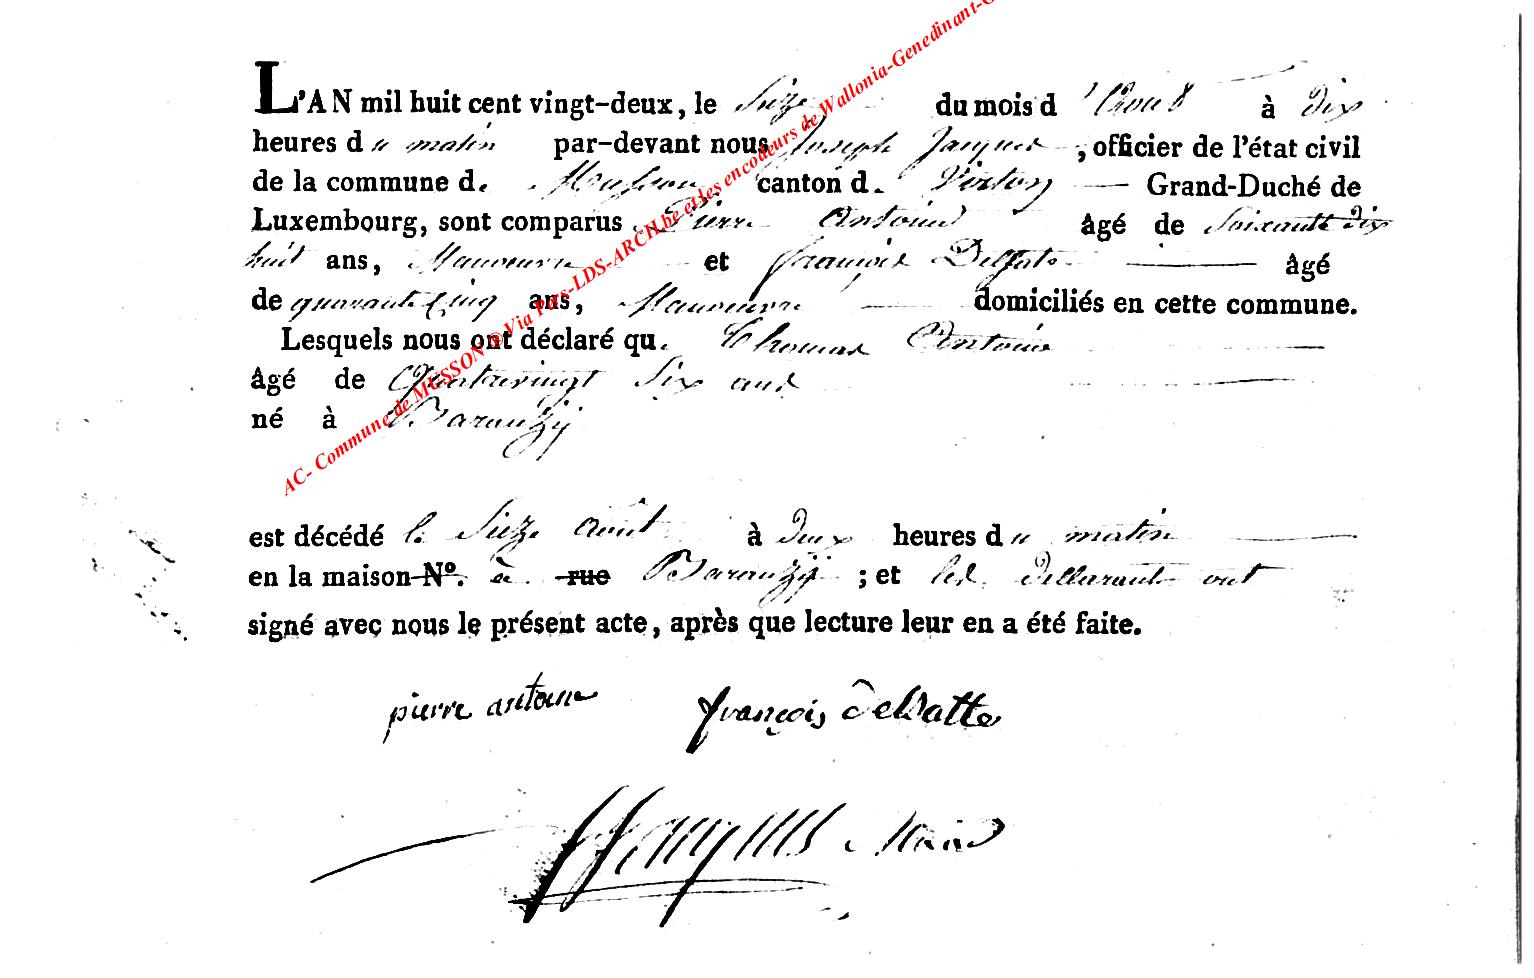 L'AN mil huit cent vingt-deux, le Sieze du mois d'Aout à dix
heures du matin par-devant nous Joseph Jacques, officier de l'état civil
de la commune de Musson canton de Virton Grand-Duché de
Luxembourg, sont comparus Pierre Antoine âgé de Soixante dix
huit ans, Manoeuvre et François Delfate âgé
de quarante Cinq ans, Manoeuvre domiciliés en cette commune.
Lesquels nous ont déclaré que Thomas Antoine
âgé de Quatrevingt Six ans
né à Baranzÿ
est décédé le Sieze Aout à deux heures du matin
en la maison N.º à rue Baranzÿ ; et les declarants ont
signé avec nous le présent acte, après que lecture leur en a été faite.
pierre antoine françois delvatte
Jacques Maire
AC- Commune de MUSSON @ Via Pers-LDS-ARCH.be et les encodeurs de Wallonia-Genedinant-G